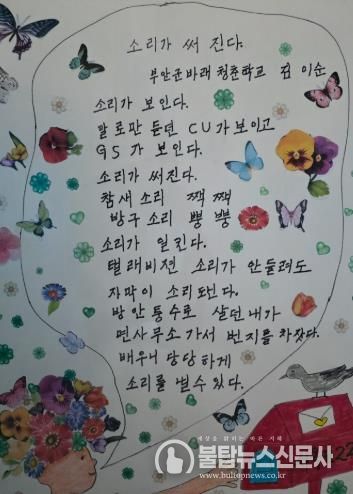 소리가 써 진다.
부안군바래 청춘학교 김 이순
소리가 보인다.
말로만 듣던 CU가 보이고
GS 가 보인다.
소리가 써진다.
참새 소리 짹 짹
방구 소리 뿡 뿡
소리가 일킨다.
텔래비젼 소리가 안들려도
자막이 소리된다.
방안통수로 살던 내가
면사무소 가서 번지를 차잤다.
배우니 당당하게
소리를 낼수 있다.
세상을 밝히는 바른 지혜
불탑뉴스신문사
www.bultopnews.co.kr